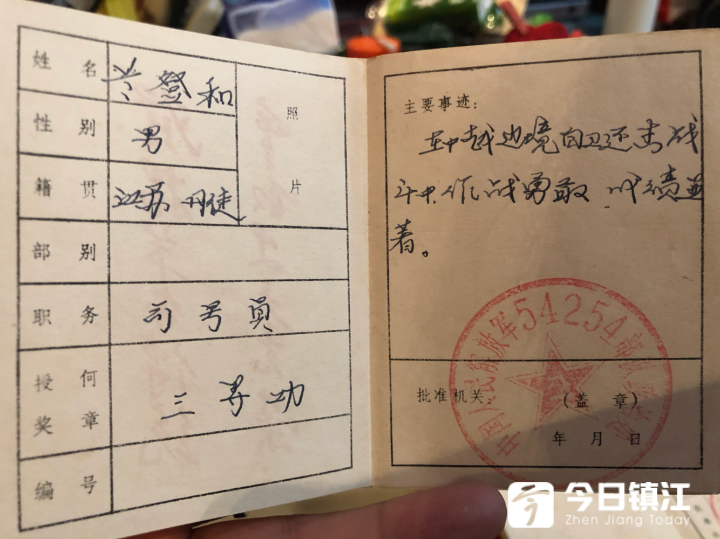 姓名 登和
照片
性别 男
籍贯 江苏 丹徒
部别
职务 司号员
授何奖章 三等功
编号
主要事迹：
在中越边境自卫还击战
斗中作战勇敢 成绩显
著。
中国人民解放军54254部队
批准机关：
（盖章）
年 月 日
今日镇江
Zhen Jiang Today